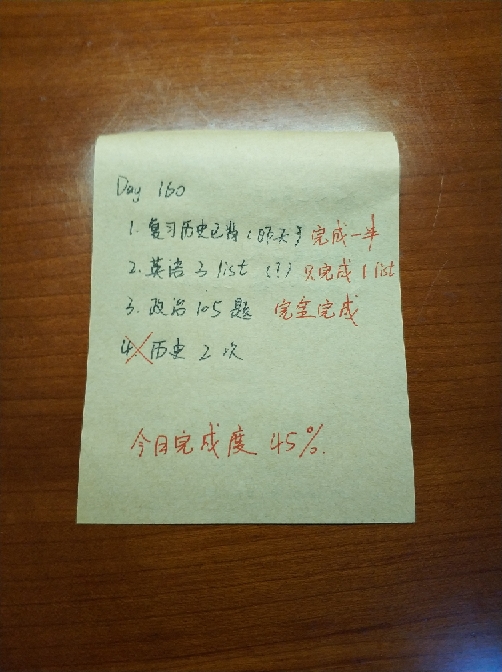 Day 160
1. 复习历史已背（昨天） 完成一半
2. 英语 3 list （？） 只完成 1 list
3. 政治 105 题 完全完成
4. 历史 2 次
今日完成度 45%.